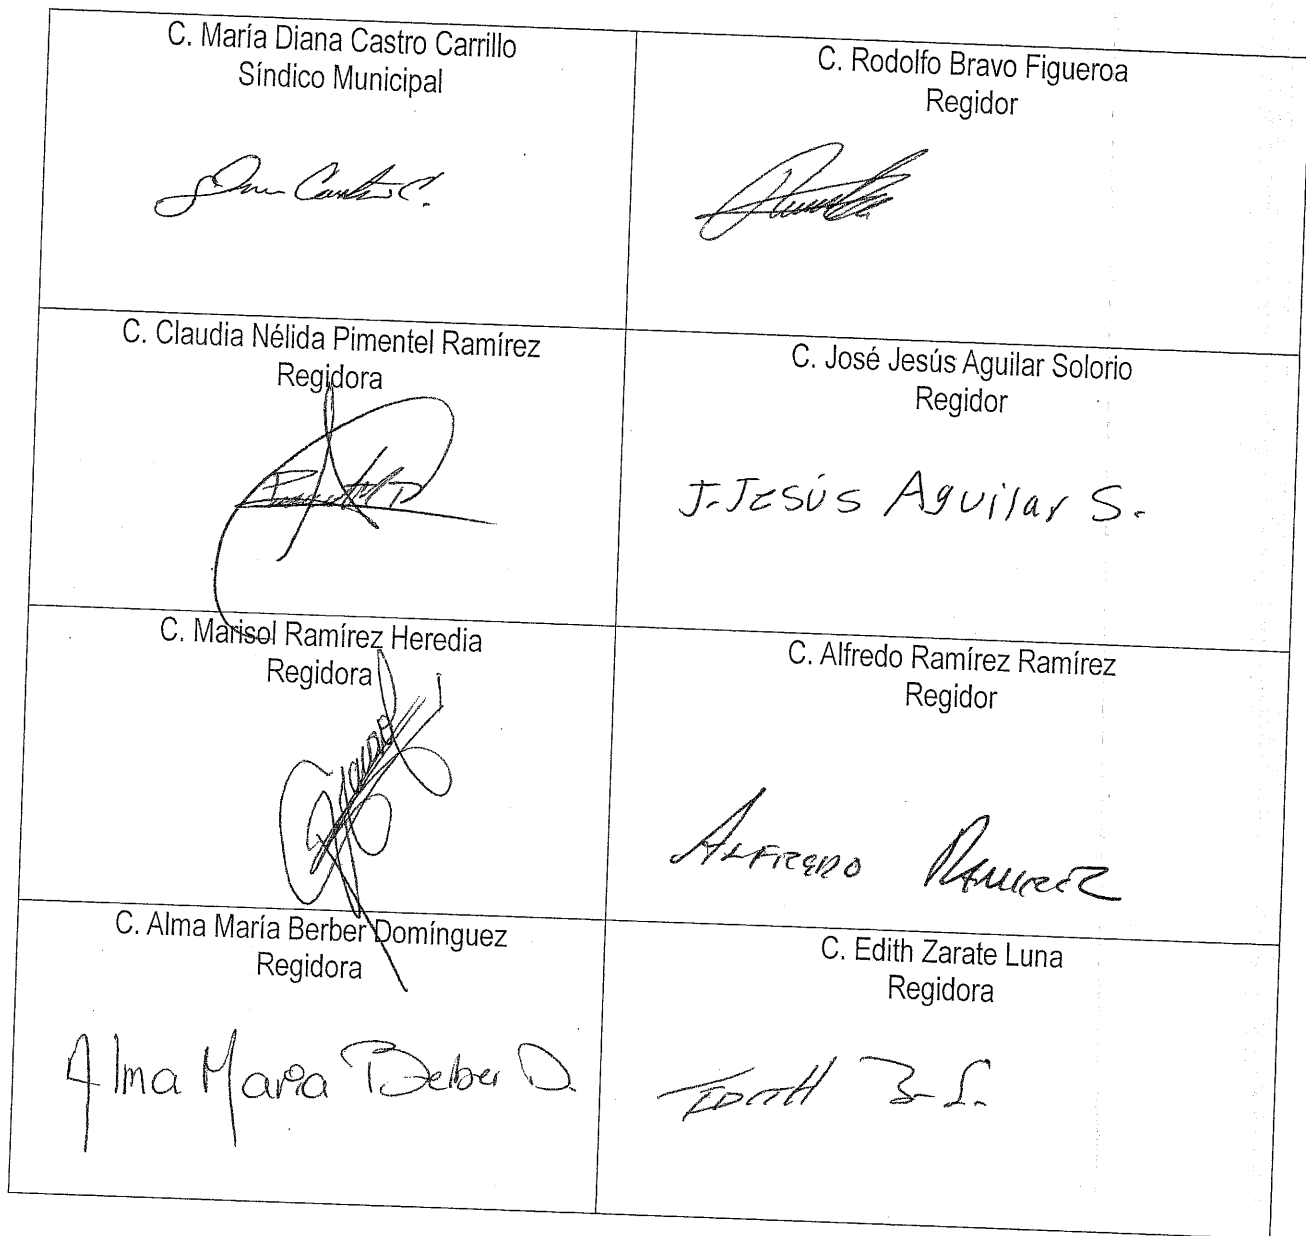 C. María Diana Castro Carrillo
Síndico Municipal
C. Rodolfo Bravo Figueroa
Regidor
C. Claudia Nélida Pimentel Ramírez
Regidora
C. José Jesús Aguilar Solorio
Regidor
J. JESÚS Aguilar S.
C. Marisol Ramírez Heredia
Regidora
C. Alfredo Ramírez Ramírez
Regidor
ALFREDO RAMIREZ
C. Alma María Berber Domínguez
Regidora
Alma Maria Berber D.
C. Edith Zarate Luna
Regidora
EDITH Z. L.